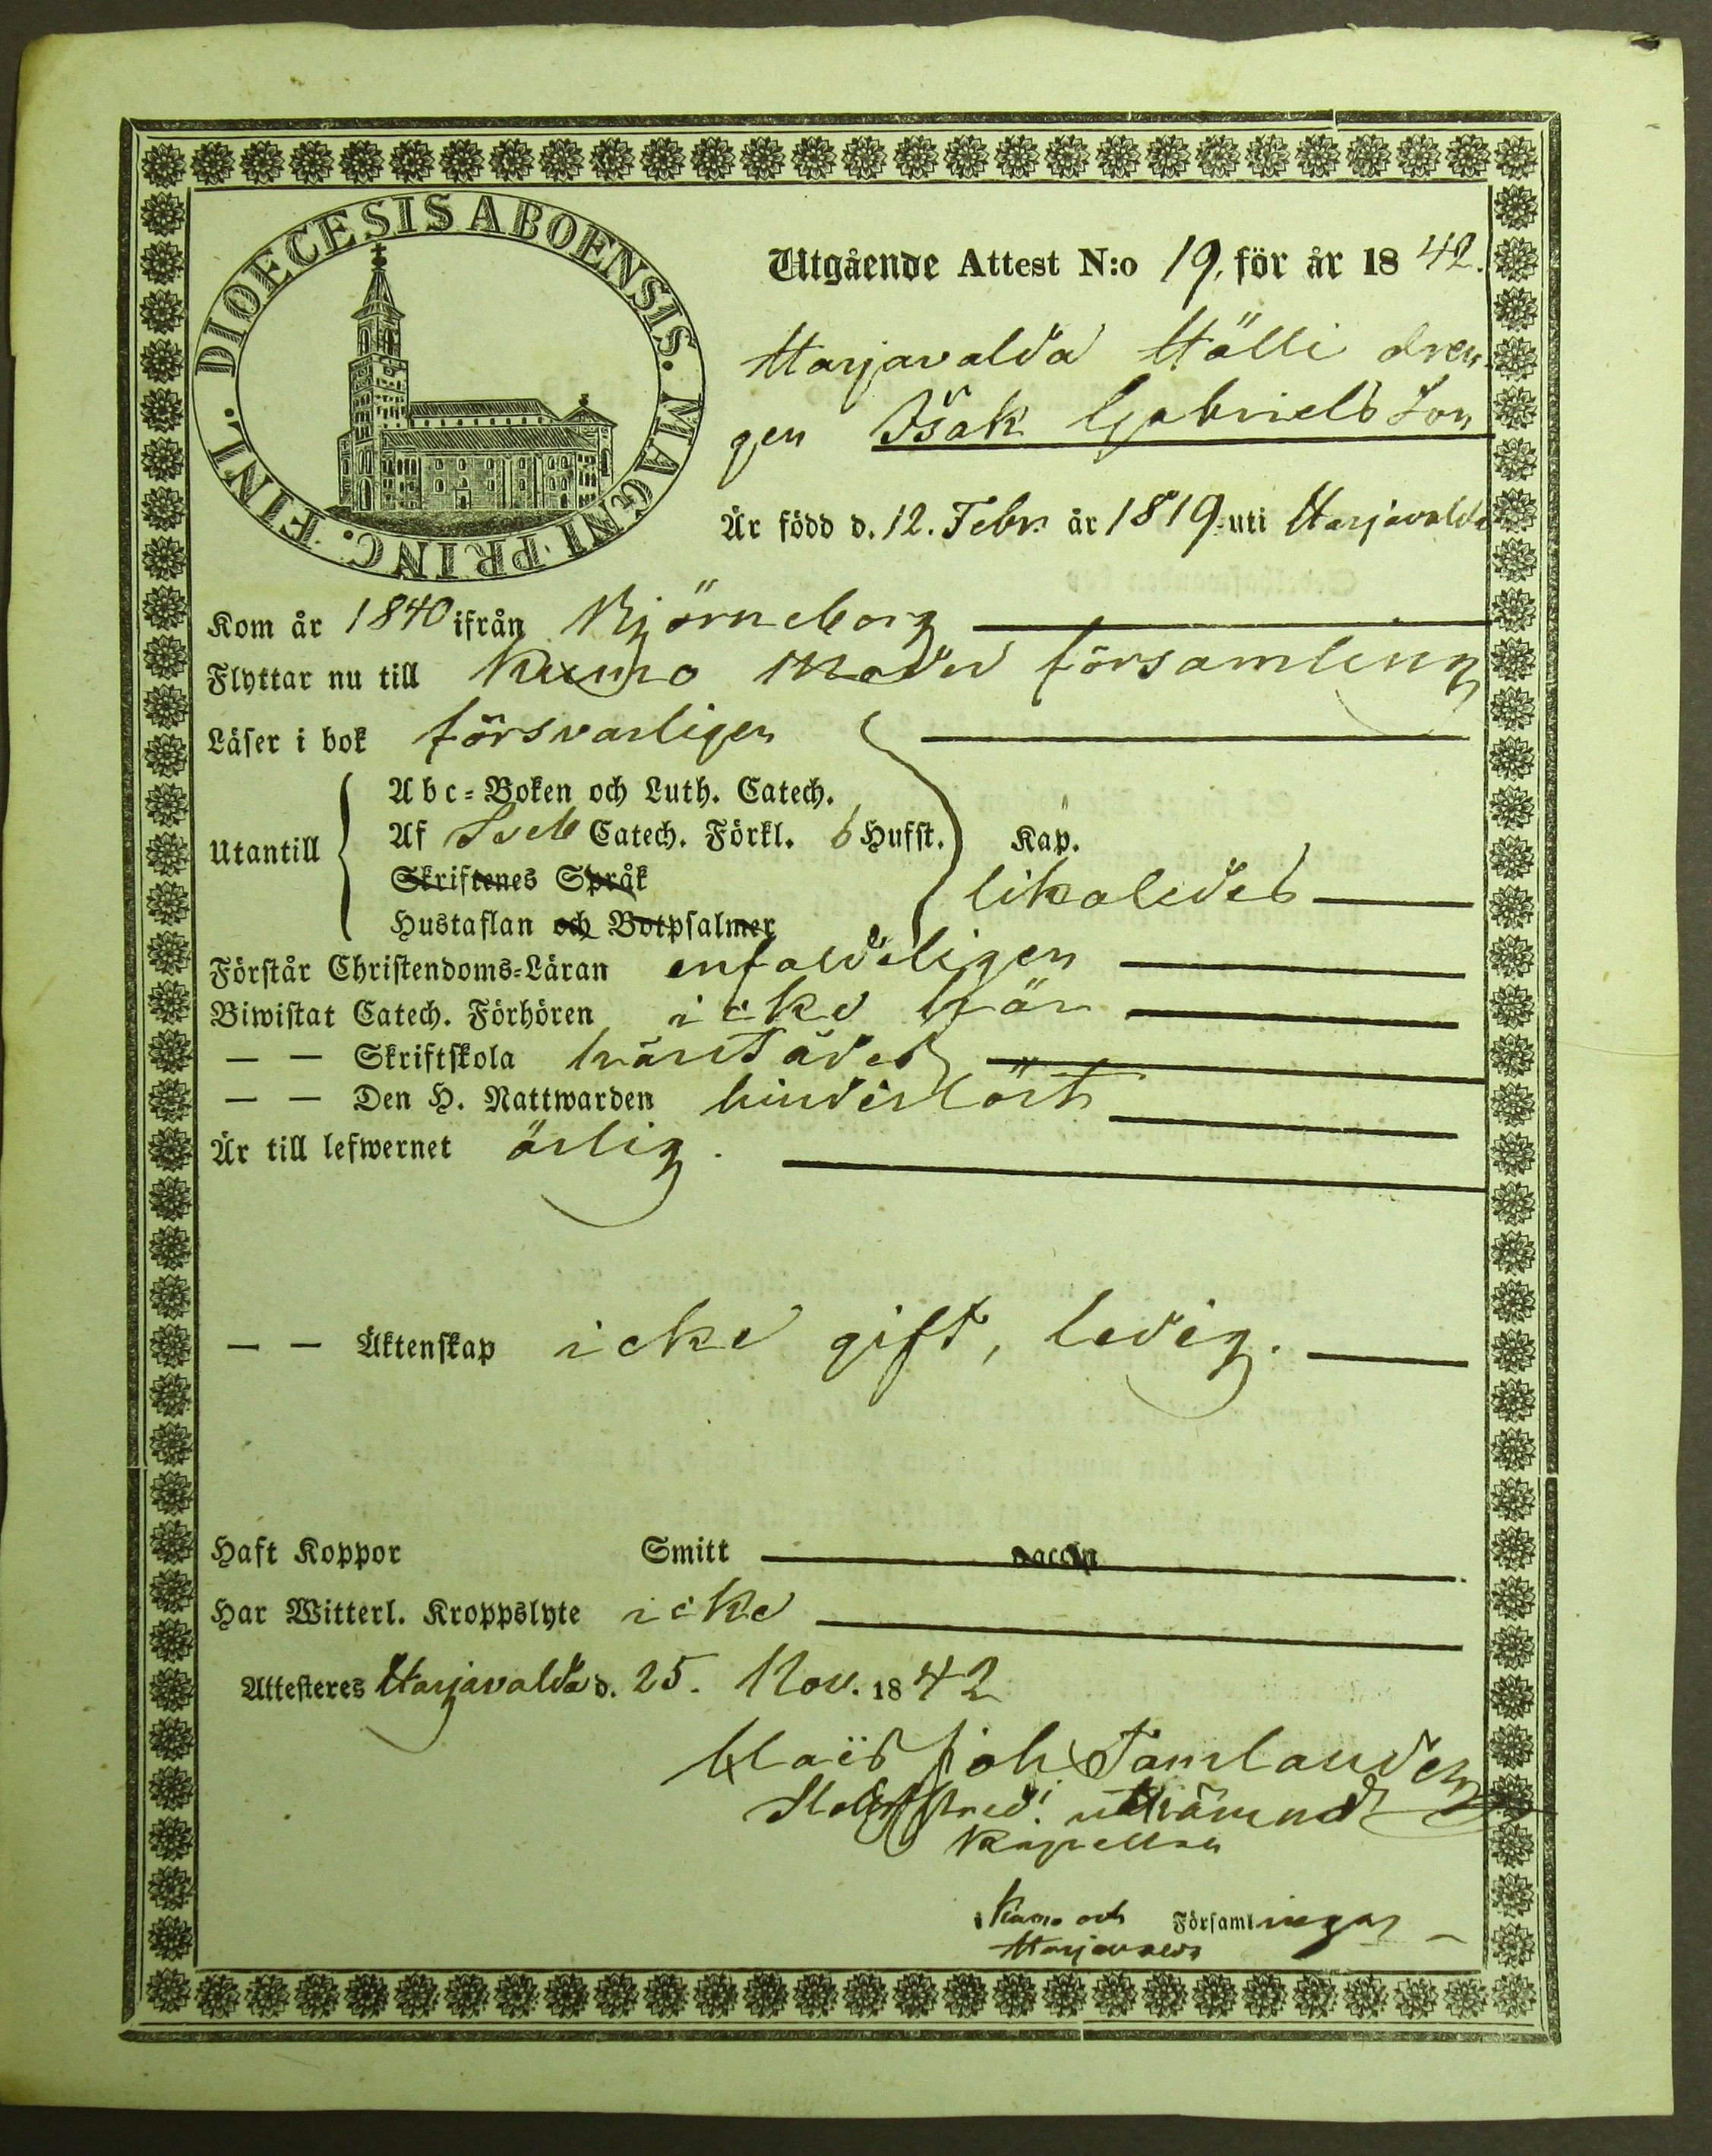 DIOECESIS ABOENSIS. MAGNI PRINC. FINL.
Utgående Attest N:o 19, för år 1842.
Harjavalda Hälli dren-
gen Isak Gabriels Son
Är född d. 12. Febr. år 1819. uti Harjavalda
Kom år 1840 ifrån Björneborg
Flyttar nu till Kumo Moder församling
Läser i bok försvarligen
Utantill
Abc-Boken och Luth. Catech.
Af Sveb Catech. Förkl. 6 Hufst. Kap.
Skriftenes Språk likaledes
Hustaflan och Botpsalmer
Förstår Christendoms-Läran enfaldeligen
Biwistat Catech. Förhören icke här
— — Skriftskola
— — Den H. Nattwarden hinderlöst
Är till lefwernet ärlig.
— — Äktenskap icke gift, ledig.
Haft Koppor Smitt vaccin
Har Witterl. Kroppslyte icke
Attesteres Harjavalda d. 25. Nov. 1842
Claës Joh Tamlander
utnämnd
Kapellan
i Kumo och Församlingar
Harjavalda